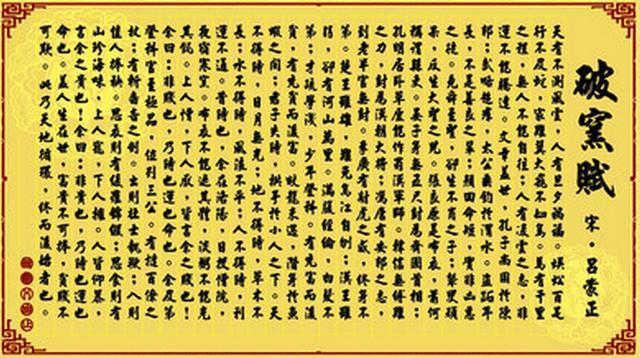 破窯賦
宋·呂蒙正
天有不測風雲，人有旦夕禍福。蜈蚣百足，
行不及蛇，家雞翼大飛不如鳥。馬有千里
之程，無人不能自往；人有凌雲之志，非
運不能騰達。文章蓋世，孔子尚困於陳
邦；武略超群，太公垂釣於渭水。盜跖年
長，不是善良之輩；顏回命短，實非凶惡
之徒。堯舜至聖，卻生不肖之子；瞽叟頑
呆，反生大聖之兒。張良原是布衣，蕭何
稱謂縣吏。晏子身無五尺，封為齊國首相；
孔明居臥草廬，能作蜀漢軍師。韓信無縛雞
之力，封為漢朝大將；馮唐有安邦之志，
到老半官無封。李廣有射虎之威，終身不
第。楚王雖雄，難免烏江自刎；漢王雖
弱，卻有河山萬里。滿腹經綸，白髮不
第；才疏學淺，少年登科。有先富而後
貧，有先貧而後富。蛟龍未遇，潛身於魚
蝦之間；君子失時，拱手於小人之下。天
不得時，日月無光；地不得時，草木不
長；水不得時，風浪不平；人不得時，利
運不通。昔時也，余在洛陽，日投僧院，
夜宿寒窯。布衣不能遮其體，淡粥不能充
其飢。上人憎，下人厭，皆言余之賤也！
余曰：非賤也，乃時也運也命也。余及第
登科，官至極品，位列三公。有撻百僚之
杖，有斬嗇吝之劍。出則壯士執鞭；入則
佳人捧秧。思衣則有綾羅錦緞；思食則有
山珍海味。上人寵，下人擁。人皆仰慕，
言余之貴也！余曰：非貴也，乃時也運也
命也。蓋人生在世，富貴不可捧，貧賤不
可欺。此乃天地循環，終而復始者也。